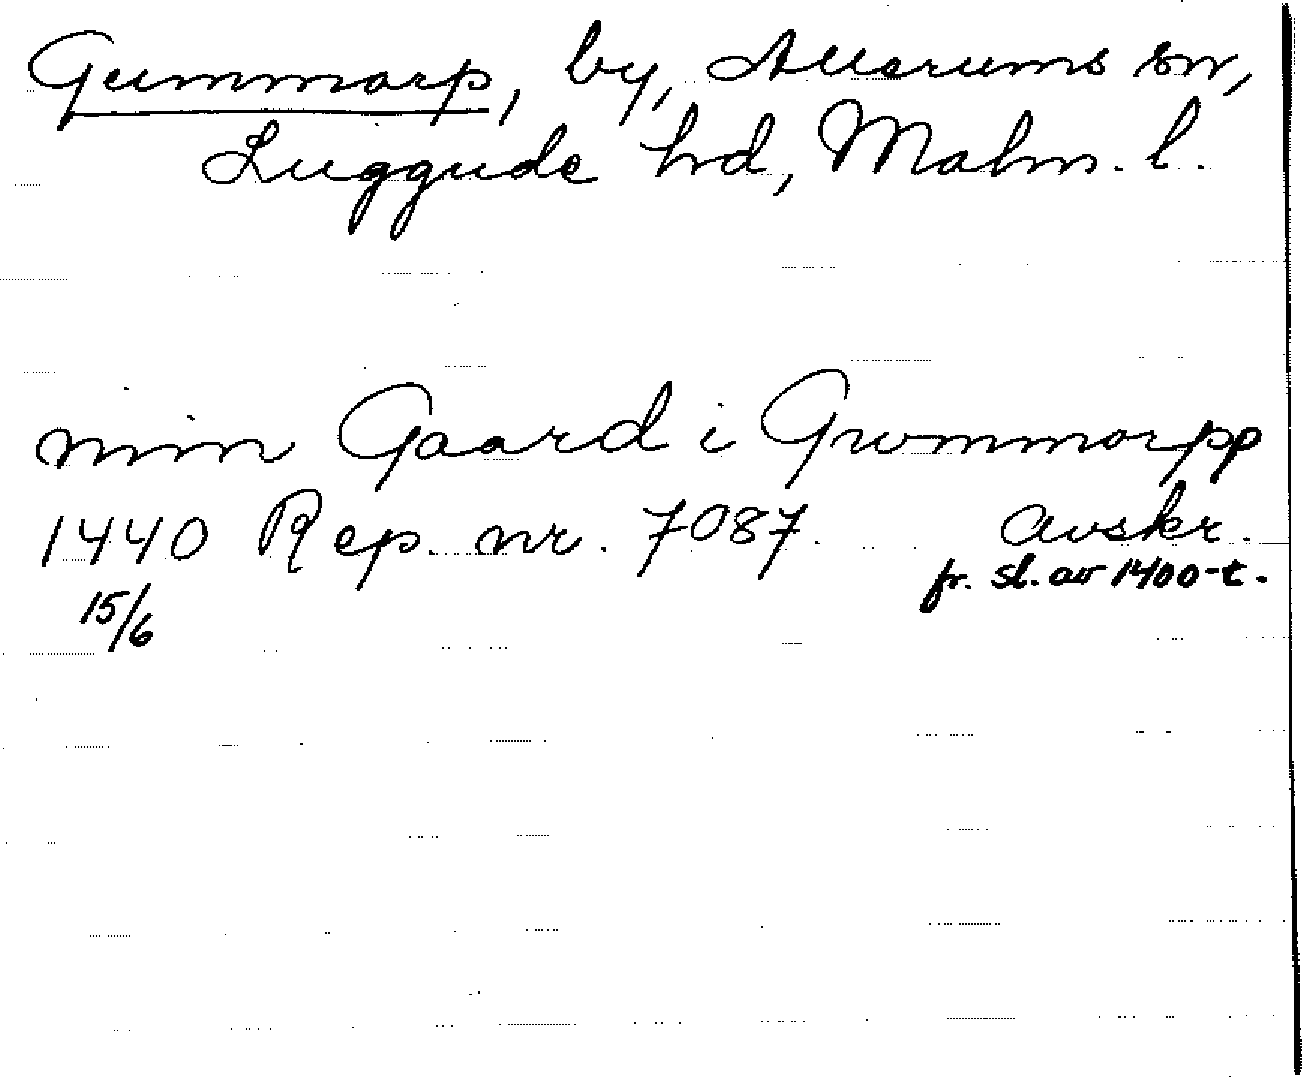 Gummarp, by, Allerums sn,
Luggude hd, Malm. l.
min Gaard i Gwmmarpp
1440 Rep. nr. 7087. Avskr.
15/6 fr. sl. av 1400-t.